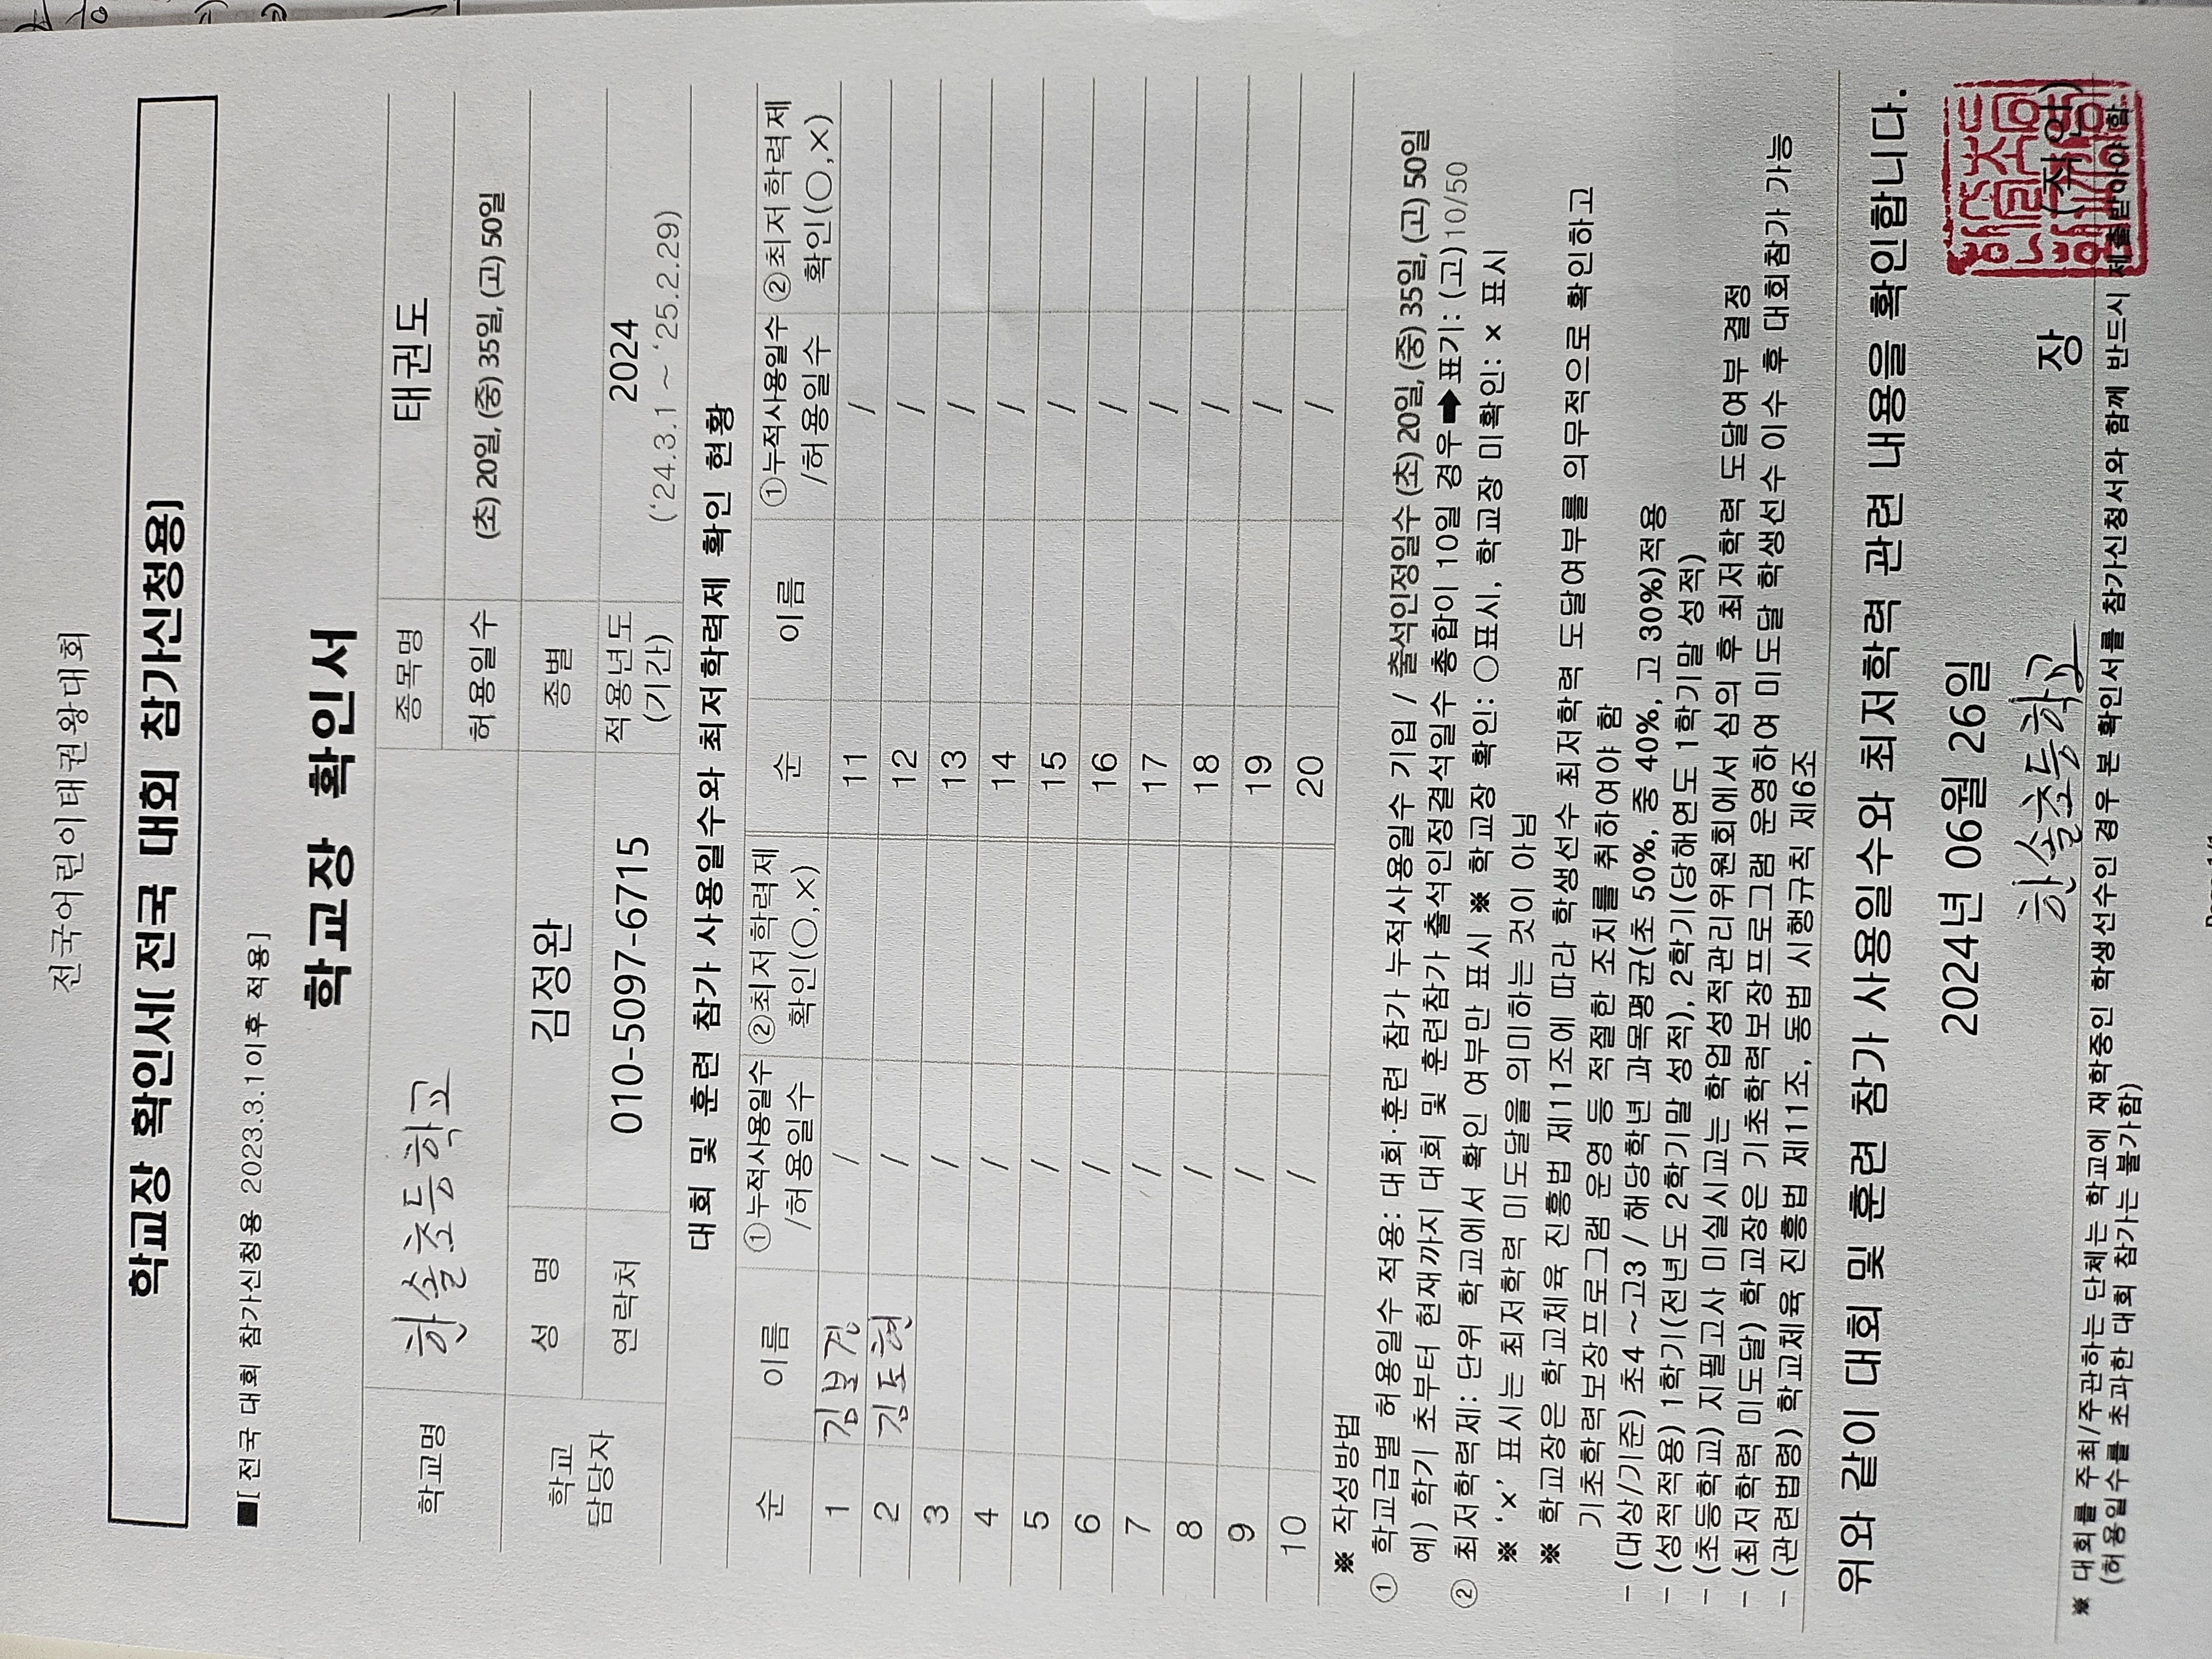 전국어린이태권왕대회
학교장 확인서( 전국 대회 참가신청용)
■[ 전국 대회 참가신청용 2023.3.1이후 적용]
학교장 확인서
학교명 한솔초등학교 종목명 태권도
허용일수 (초) 20일, (중) 35일, (고) 50일
학교 담당자 성 명 김정완 종별
연락처 010-5097-6715 적용년도 (기간) 2024
('24.3.1 ~ '25.2.29)
대회 및 훈련 참가 사용일수와 최저학력제 확인 현황
순 이름 ①누적사용일수 ②최저학력제 순 이름 ①누적사용일수 ②최저학력제
/허용일수 확인(○,×) /허용일수 확인(○,×)
1 김보경 / 11 /
2 김도현 / 12 /
3 / 13 /
4 / 14 /
5 / 15 /
6 / 16 /
7 / 17 /
8 / 18 /
9 / 19 /
10 / 20 /
※ 작성방법
① 학교급별 허용일수 적용: 대회·훈련 참가 누적사용일수 기입 / 출석인정일수 (초) 20일, (중) 35일, (고) 50일
예) 학기 초부터 현재까지 대회 및 훈련참가 출석인정결석일수 총합이 10일 경우➡표기: (고) 10/50
② 최저학력제: 단위 학교에서 확인 여부만 표시 ※ 학교장 확인: ○표시, 학교장 미확인: × 표시
※ '×' 표시는 최저학력 미도달을 의미하는 것이 아님
※ 학교장은 학교체육 진흥법 제11조에 따라 학생선수 최저학력 도달여부를 의무적으로 확인하고
기초학력보장프로그램 운영 등 적절한 조치를 취하여야 함
- (대상/기준) 초4 ~ 고3 / 해당학년 과목평균(초 50%, 중 40%, 고 30%)적용
- (성적적용) 1학기(전년도 2학기말 성적), 2학기(당해연도 1학기말 성적)
- (초등학교) 지필고사 미실시교는 학업성적관리위원회에서 심의 후 최저학력 도달여부 결정
- (최저학력 미도달) 학교장은 기초학력보장프로그램 운영하여 미도달 학생선수 이수 후 대회참가 가능
- (관련법령) 학교체육 진흥법 제11조, 동법 시행규칙 제6조
위와 같이 대회 및 훈련 참가 사용일수와 최저학력 관련 내용을 확인합니다.
2024년 06월 26일
한솔초등학교 장 (직인)
※ 대회를 주최/주관하는 단체는 학교에 재학중인 학생선수인 경우 본 확인서를 참가신청서와 함께 반드시 제출받아야 함
(허용일수를 초과한 대회 참가는 불가함)